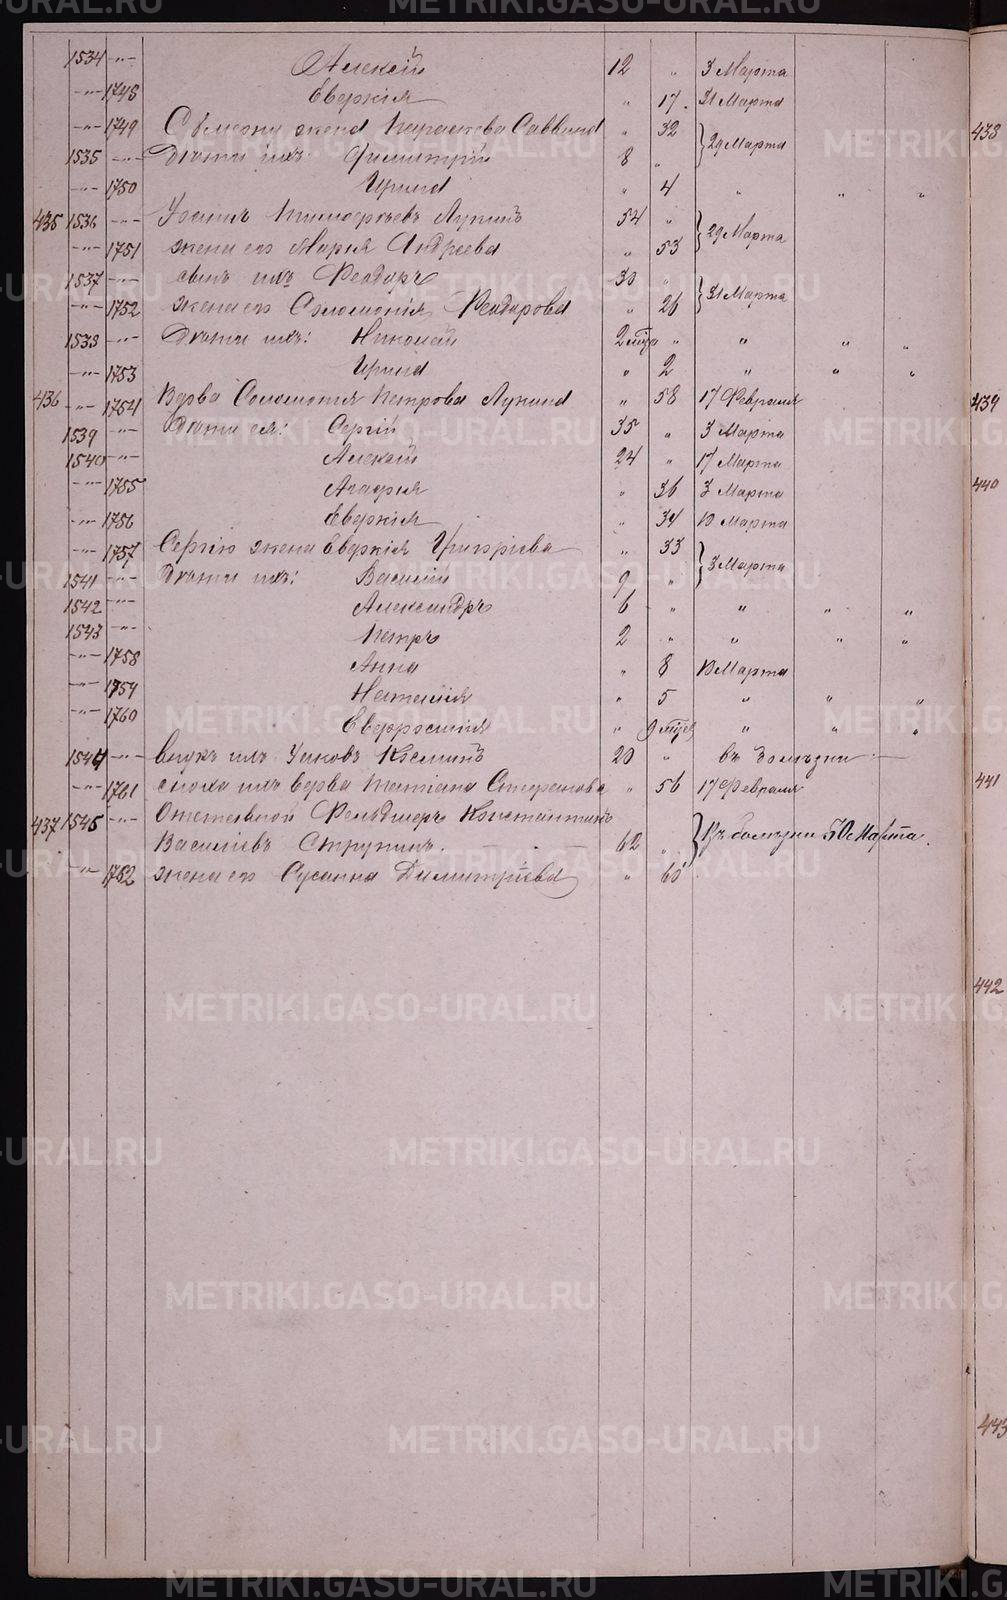 METRIKI.GASO-URAL.RU
1534 -"- Алексѣй 12 " 3 Марта
-"- 1748 Евдокія " 17. 31 Марта
-"- 1749 Симеону жена Параскева Саввина " 32 } 29 Марта
1535 -"- Дѣти ихъ: Димитрій 8 "
-"- 1750 Ирина " 4 " " "
435 1536 -"- Іоаннъ Тимоѳеевъ Лунинъ 54 " } 29 Марта
-"- 1751 жена его Марія Андреева " 53
1537 -"- сынъ ихъ Ѳеодоръ 30 " } 31 Марта
-"- 1752 жена его Соломонія Ѳеодорова " 26
1538 -"- Дѣти ихъ: Николай 2 " " " "
-"- 1753 Ирина " 2 " " "
436 -"- 1754 Вдова Соломонія Петрова Лунина " 58 17 Февраля
1539 -"- Дѣти ея: Сергій 35 " 3 Марта
1540 -"- Алексѣй 24 " 17 Марта
-"- 1755 Агафія " 36 3 Марта
-"- 1756 Евдокія " 34 10 Марта
-"- 1757 Сергію жена Евдокія Григорьева " 33 } 3 Марта
1541 -"- Дѣти ихъ: Василій 9 "
1542 -"- Александръ 6 " " " "
1543 -"- Петръ 2 " " " "
-"- 1758 Анна " 8 10 Марта
-"- 1759 Наталія " 5 " " "
-"- 1760 Евфросинія " 9 " " "
1544 -"- внукъ ихъ Іаковъ 20 "
-"- 1761 сноха ихъ вдова Татіана Стефанова " 56 17 Февраля
437 1545 -"- Отставной Фельдшеръ Константинъ
Василіевъ Струнинъ. 62 " } Въ болѣзни 10 Марта.
-"- 1762 жена его Сусанна Димитріева " 60
438
439
440
441
442
443